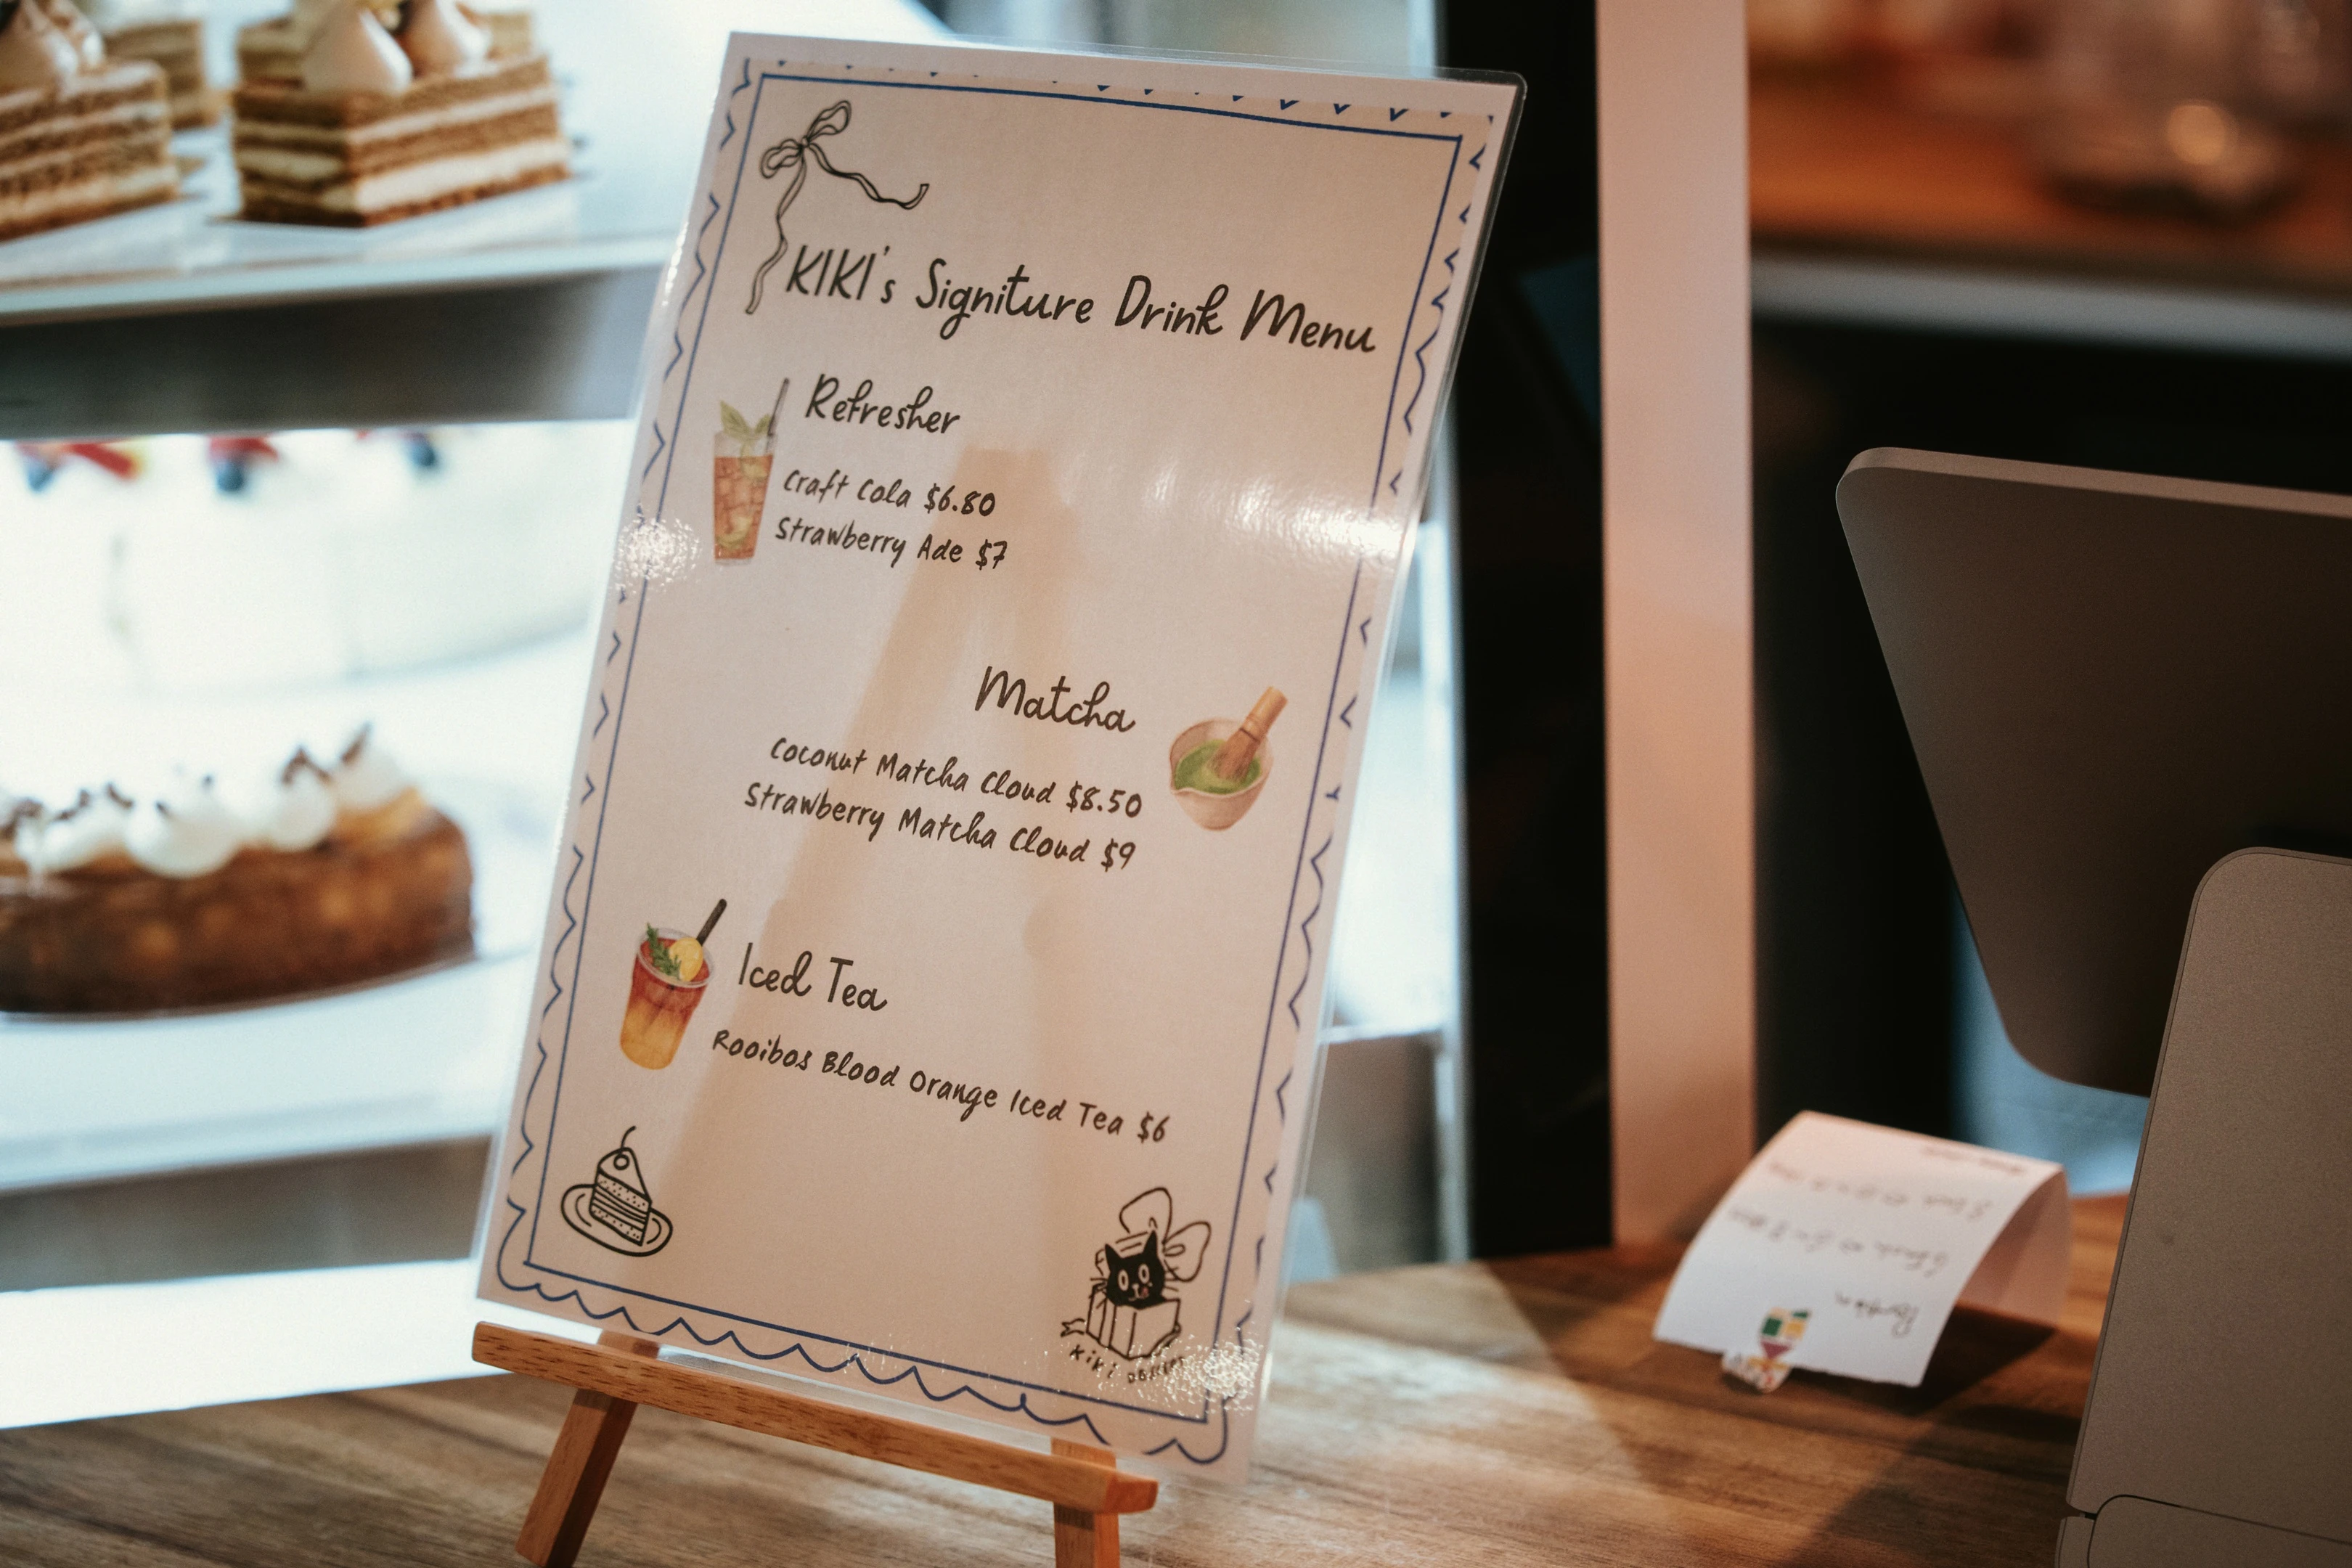 KIKI's Signiture Drink Menu
Refresher
Craft Cola $6.80
Strawberry Ade $7
Matcha
Coconut Matcha Cloud $8.50
Strawberry Matcha Cloud $9
Iced Tea
Rooibos Blood Orange Iced Tea $6
Kiki